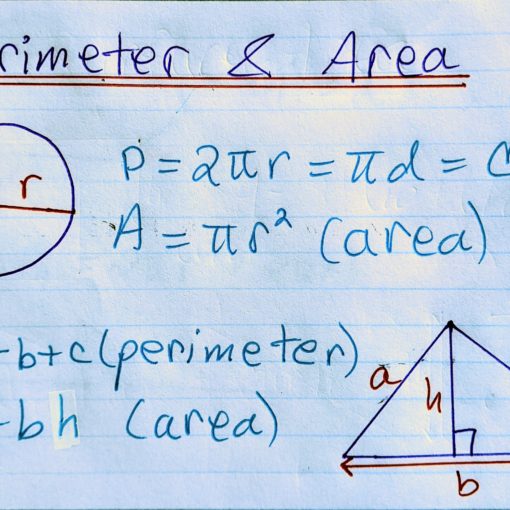 rimeter & Area
r
P = 2πr = πd = C
A = πr² (area)
b+c (perimeter)
bh (area)
a
h
b